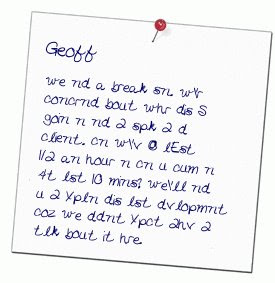 Geoff
we nd a break sn. w'r
concrnd bout whr dis S
goin n nd 2 spk 2 d
client. cn w'v @ lEst
1/2 an hour n cn u cum n
4t lst 10 mins? we'll nd
u 2 Xpln dis lst dvlopmnt
coz we ddnt Xpct 2hv 2
tlk bout it hre.